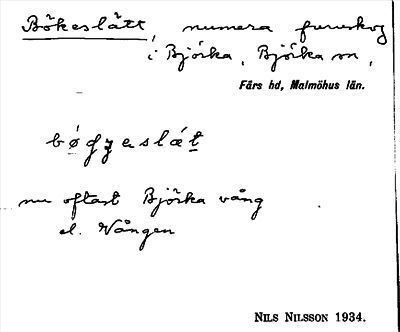 Bökeslätt, numera furuskog
i Björka, Björka sn,
Färs hd, Malmöhus län.
nu oftast Björka vång
el. Vången
NILS NILSSON 1934.